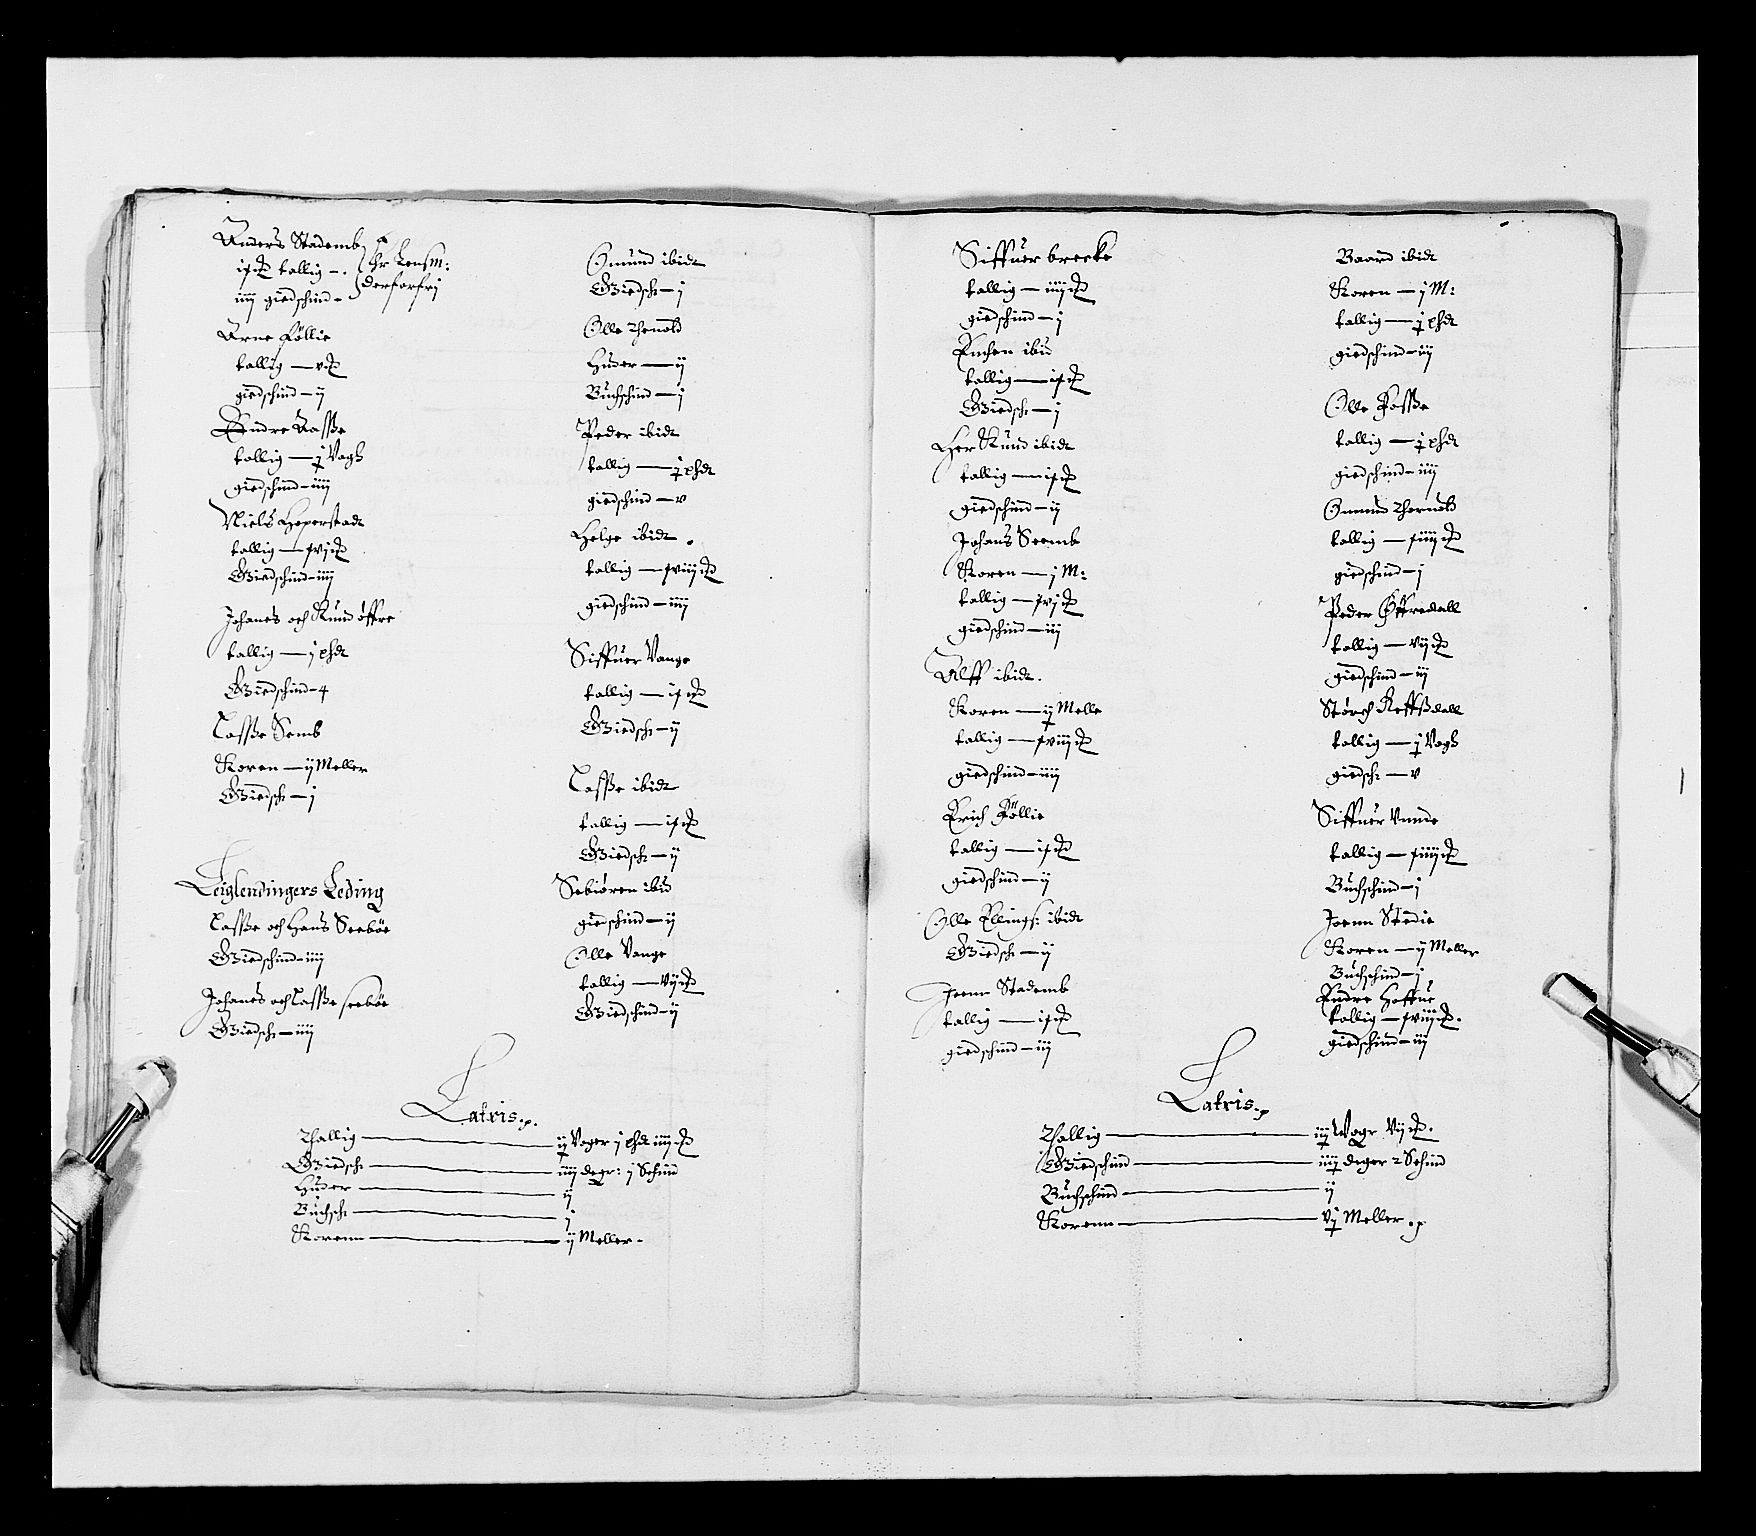 Anders Stademb
ix tallig —
iiij giedschind —
er Lensm:
derforfrj
Arne Föllie
tallig — v
giedschind — ij
Endre Aasse
tallig — j Vogh
giedschind — iiij
Niels Hoperstadt
tallig — xvj
Giedschind — iiij
Johanes och Knud öffre
tallig — j phdt
Giedschind — 4
Lasse Semb
Koren — ij Meller
Giedsch: — j
Leiglendingers Leding
Lasse och Hans Seebøe
Giedschind — iiij
Johanes och Lasse seebøe
Giedsch: — iiij
Omund ibidt
Giedsch: — j
Olle
Huder — ij
Buchschind — j
Peder ibidt
tallig — j phdt
giedschind — v
Helge ibidt
tallig — xviij
giedschind — iiij
Siffuer Vange
tallig — ix
Giedsch: — ij
Lasse ibidt
tallig — ix
Giedsch: — ij
Sebiøren ibid
giedschind — ij
Olle Vange
tallig — vij
Giedschind — ij
Latris.
Thallig — iij Voger j phdt iiij
Giedsch: — iiij degr: j Schind
Huder — ij
Buchsch: — j
Korenn — ij Meller.
Siffuer brecke
tallig — iiij
giedschind — j
ibid
tallig — ix
Giedsch: — j
Her Knud ibidt
tallig — ix
giedschind — ij
Johans Seemb
Koren — j M:
tallig — xvj
giedschind — iij
Alff ibidt.
Koren — ij Melle
tallig — xviij
giedschind — iiij
Erich Föllie
tallig — ix
giedschind — ij
Olle Ellings: ibidt
Giedsch: — ij
Joenn Stademb
tallig — ix
giedschind — iij
Baard ibidt
Koren — j M:
tallig — j phdt
giedschind — iij
Olle Fosse
tallig — j phdt
giedschind — iiij
Omund
tallig — xiiij
giedschind — j
Peder Öffredall
tallig — vij
giedschind — iij
Størch Reffsdall
tallig — j Vogh
giedsch: — v
Siffuer Vnnde
tallig — xiiij
Buchschind — j
Joenn Stedie
Koren — ij Meller
Buchschind — j
Endre Hoffue
tallig — xviij
giedschind — iij
Latris.
Thallig — iij Wogr Vij
Giedschind — iiij deger 2 Schind
Buchschind — ij
Korenn — Vj Meller.